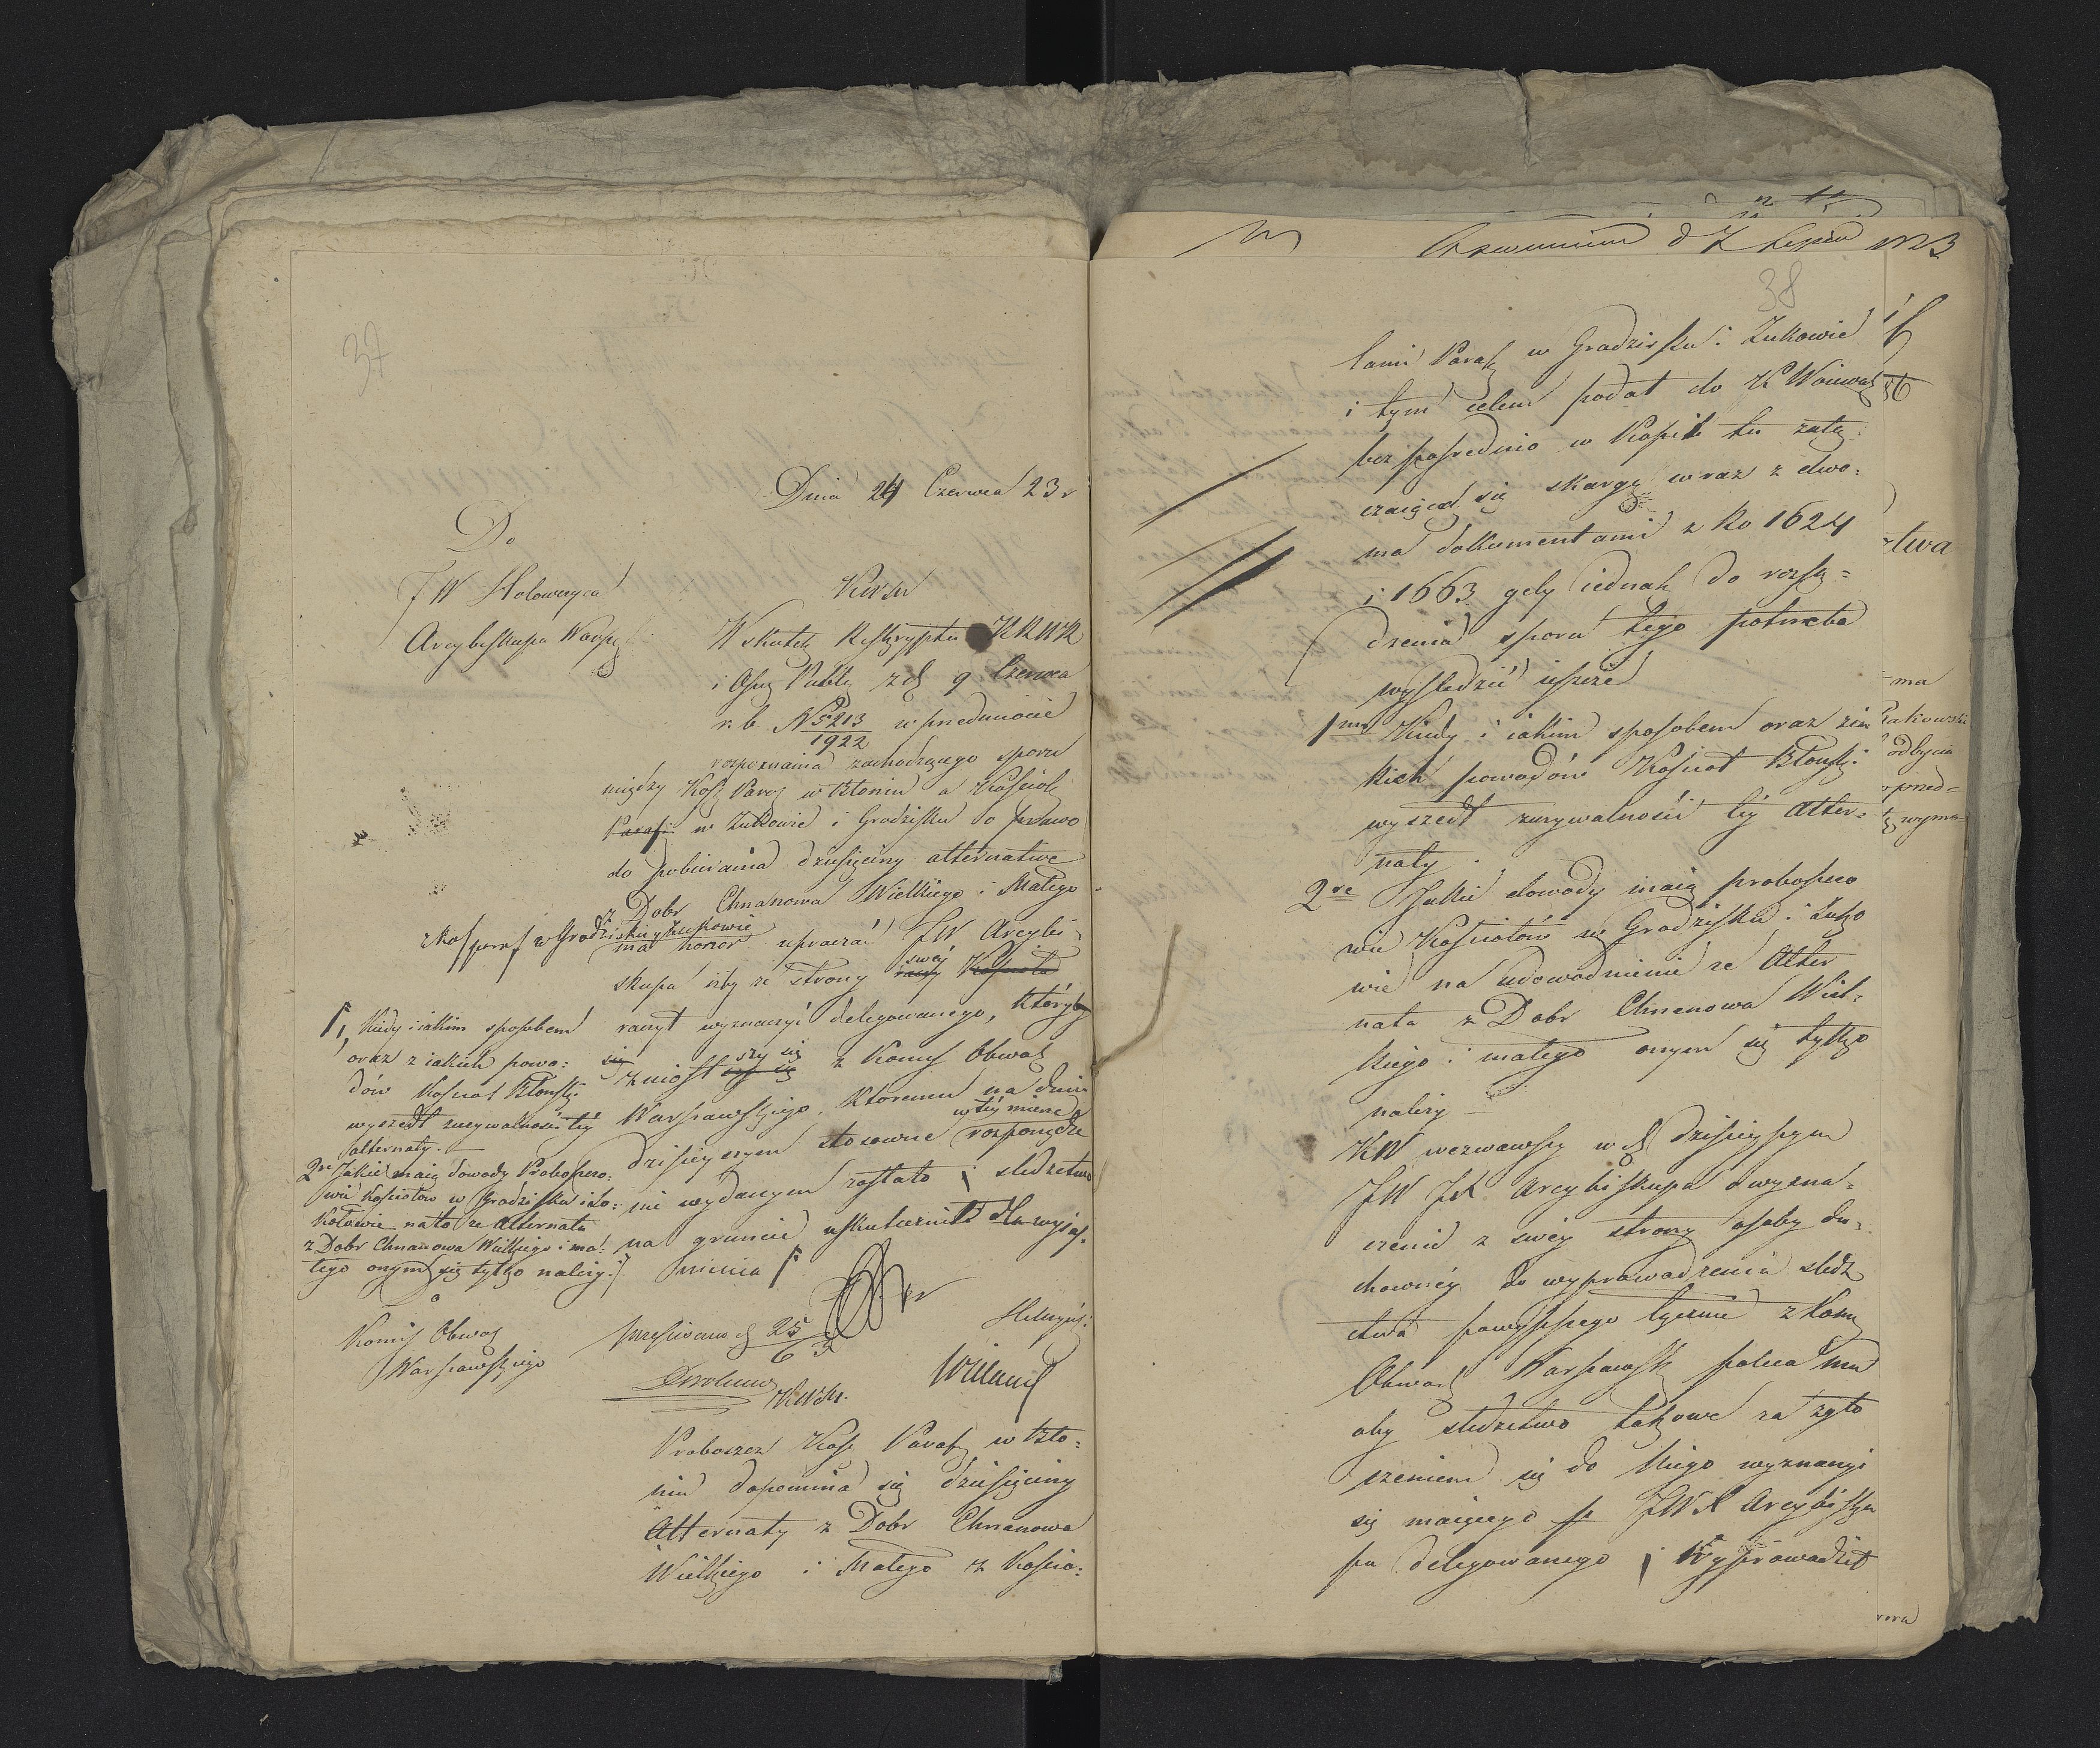 37
Dnia 24 Czerwca 23 r
Do
JW Hołowczyca
Arcybiskupa Warsz
KWM
W skutek Reskryptu KRWR
i Ośw Publ z d 9 Czerwca
r. b. N 5213/1922 w przedmiocie
rozpoznania zachodzącego sporu
między Koś Paraf w Błoniu a Kościoł
Paraf w Żukowie i Grodzisku o prawo
do pobierania dziesięciny alternative
z Dobr Chrzanowa Wielkiego i Małego
z Koś paraf w Grodzisku y Żukowie
ma honor upraszać JW Arcybi-
skupa iżby ze strony swéj
raczył wyznaczyć delegowanego, któryby
zniósłszy się z Komis Obwod
Warszawskiego, któremu na dniu
dzisieyszym stosowne w téy mierze rozporządze
nie wydanem zostało i śledztwo
na gruncie uskutecznił dla wyjaś-
nienia
1, Kiedy i iakim sposobem
oraz z iakich powo=
dów Kościoł Błoński
wyszedł z używalności téy
alternaty.
2re Jakie maią dowody Probosczo=
wie Kościołów w Grodzisku i Żu=
kowie na to że Alternata
z Dobr Chrzanowa Wielkiego i ma=
łego onym się tylko należy.
Do
Komis Obwod
Warszawskiego
przepisano d 25/6 3
KWM.
Proboszcz Koś Paraf w Bło=
niu dopomina się dziesięciny
Alternaty z Dobr Chrzanowa
Wielkiego i Małego z Kościo=
38
łami Paraf w Grodzisku i Żukowie
i tym celem podał do K Woiewod
bezpośrednio w Kopii tu załą=
czaiącą się skargę wraz z dwo=
ma dokumentami z Ro 1624
i 1663 gdy iednak do rozsą=
dzenia sporu tego potrzeba
wyśledzić ieszcze
1mo Kiedy i iakim sposobem oraz z ia
kich powodów Kościoł Błoński
wyszedł z używalności téy Alter=
naty
2re Jakie dowody maią probosczo
wie Kościołów w Grodzisku i Żuko
wie na udowodnienie że Alter
nata z Dobr Chrzanowa Wiel=
kiego i małego onym się tylko
należy
KW wezwawszy w d dzisieyszym
JW JX Arcybiskupa o wyzna=
czenie z swéy strony osoby du=
chownéy do wyprowadzenia śledz
ctwa powyższego łącznie z Kom
Obwod Warszawsk poleca mu
aby śledztwo takowe za zgło
szeniem się do Niego wyznaczyć
się maiącego p JWX Arcybisku
pa delegowanego i wyprowadził